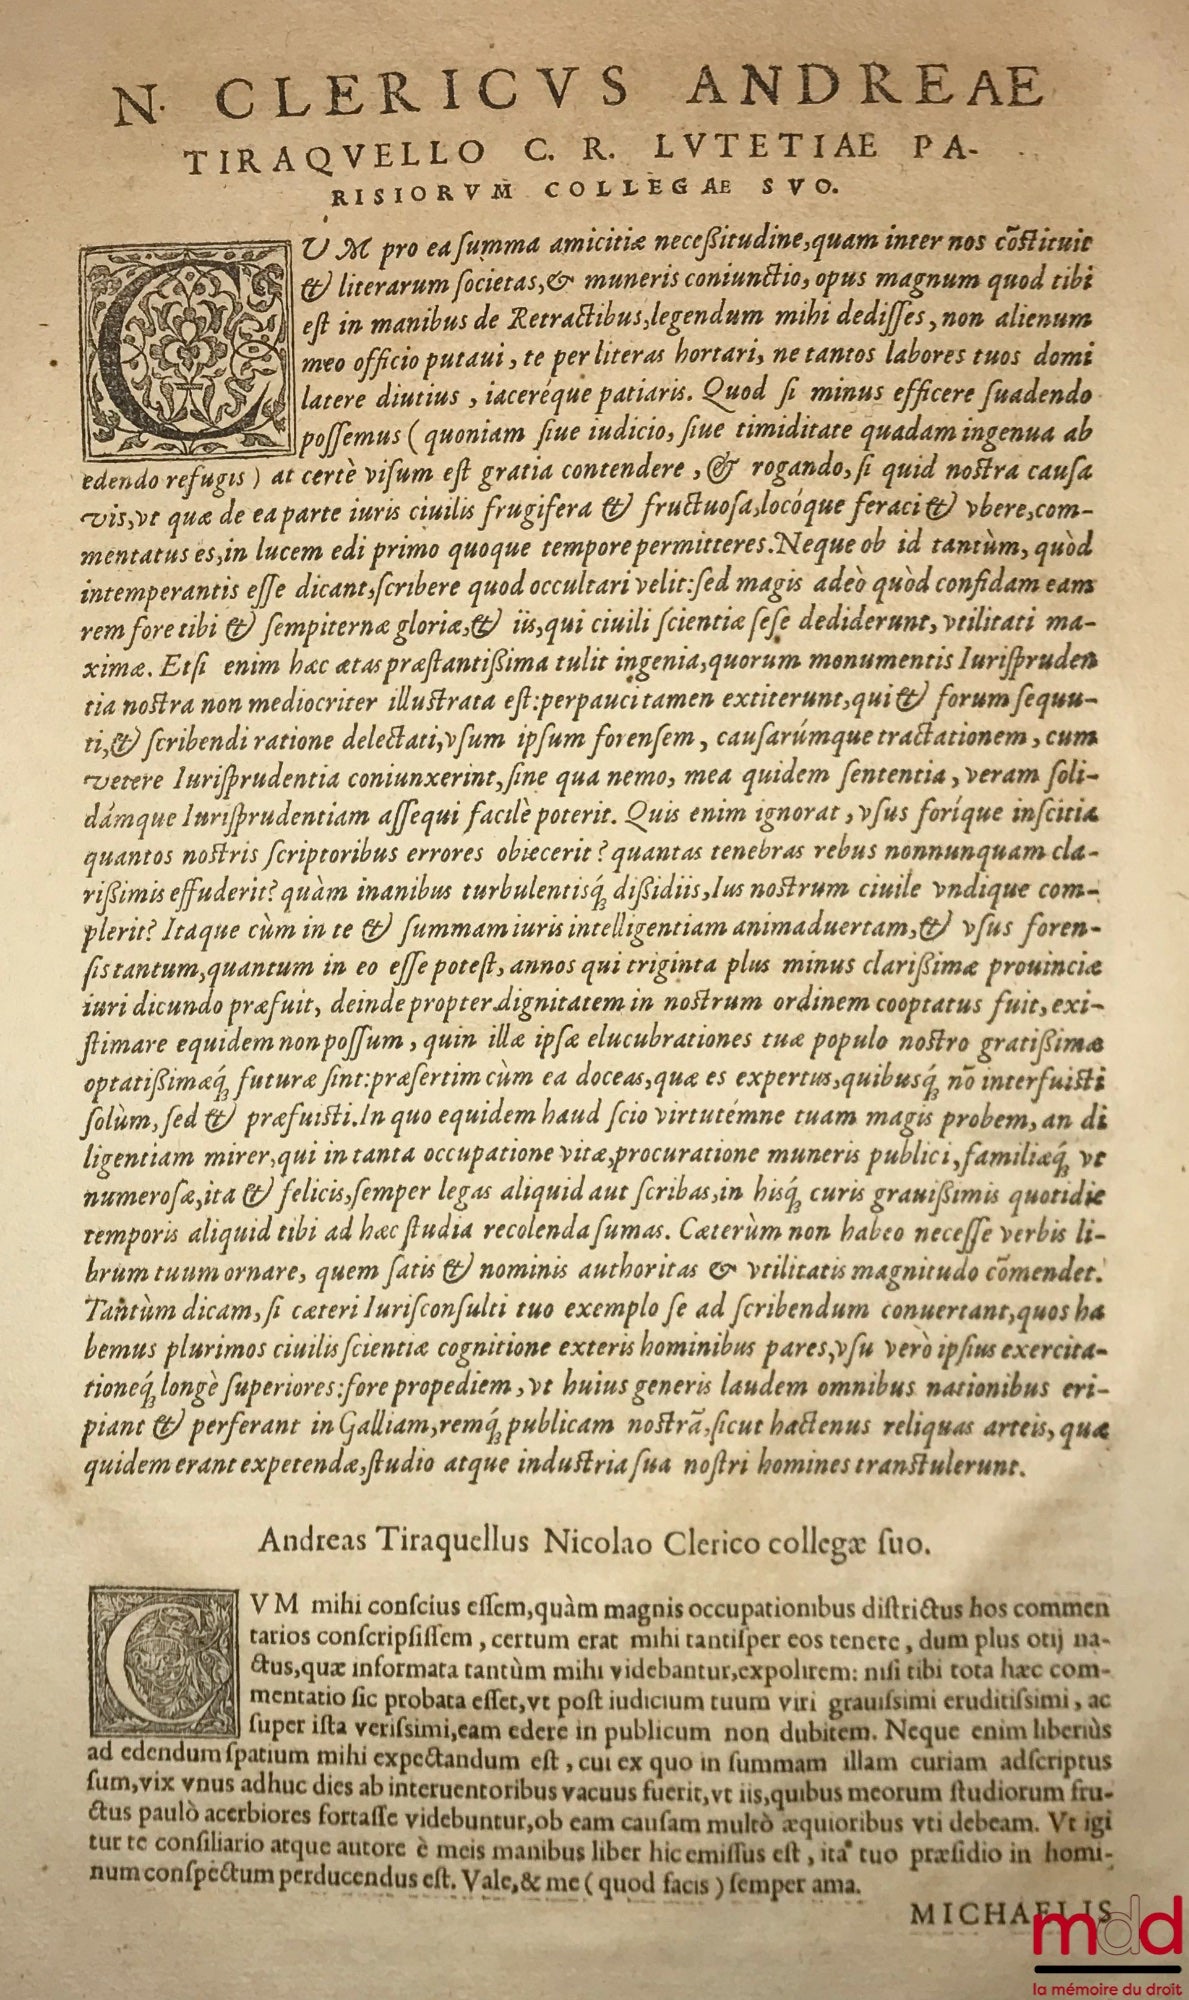 N. CLERICVS ANDREAE
TIRAQVELLO C. R. LVTETIAE PA-
RISIORVM COLLEGAE SVO.
CVM pro ea summa amicitiæ necessitudine, quam inter nos cōstituit
& literarum societas, & muneris coniunctio, opus magnum quod tibi
est in manibus de Retractibus, legendum mihi dedisses, non alienum
meo officio putaui, te per literas hortari, ne tantos labores tuos domi
latere diutius, iaceréque patiaris. Quod si minus efficere suadendo
possemus (quoniam siue iudicio, siue timiditate quadam ingenua ab
edendo refugis) at certè visum est gratia contendere, & rogando, si quid nostra causa
vis, vt quæ de ea parte iuris ciuilis frugifera & fructuosa, locóque feraci & vbere, com-
mentatus es, in lucem edi primo quoque tempore permitteres. Neque ob id tantùm, quòd
intemperantis esse dicant, scribere quod occultari velit: sed magis adeò quòd confidam eam
rem fore tibi & sempiternæ gloriæ, & iis, qui ciuili scientiæ sese dediderunt, vtilitati ma-
ximæ. Etsi enim hæc ætas præstantissima tulit ingenia, quorum monumentis Iurispruden
tia nostra non mediocriter illustrata est: perpauci tamen extiterunt, qui & forum sequu-
ti, & scribendi ratione delectati, vsum ipsum forensem, causarúmque tractationem, cum
vetere Iurisprudentia coniunxerint, sine qua nemo, mea quidem sententia, veram soli-
dámque Iurisprudentiam assequi facilè poterit. Quis enim ignorat, vsus foríque inscitia
quantos nostris scriptoribus errores obiecerit? quantas tenebras rebus nonnunquam cla-
rissimis effuderit? quàm inanibus turbulentisq́; dissidiis, Ius nostrum ciuile vndique com-
plerit? Itaque cùm in te & summam iuris intelligentiam animaduertam, & vsus foren-
sis tantum, quantum in eo esse potest, annos qui triginta plus minus clarissimæ prouinciæ
iuri dicundo præfuit, deinde propter dignitatem in nostrum ordinem cooptatus fuit, exi-
stimare equidem non possum, quin illæ ipsæ elucubrationes tuæ populo nostro gratissimæ
optatissimæq́; futuræ sint: præsertim cùm ea doceas, quæ es expertus, quibusq́; nō interfuisti
solùm, sed & præfuisti. In quo equidem haud scio virtutémne tuam magis probem, an di
ligentiam mirer, qui in tanta occupatione vitæ, procuratione muneris publici, familiæq́; vt
numerosæ, ita & felicis, semper legas aliquid aut scribas, in hisq́; curis grauissimis quotidie
temporis aliquid tibi ad hæc studia recolenda sumas. Cæterùm non habeo necesse verbis li-
brum tuum ornare, quem satis & nominis authoritas & vtilitatis magnitudo cōmendet.
Tantùm dicam, si cæteri Iurisconsulti tuo exemplo se ad scribendum conuertant, quos ha
bemus plurimos ciuilis scientiæ cognitione exteris hominibus pares, vsu verò ipsius exercita-
tioneq́; longè superiores: fore propediem, vt huius generis laudem omnibus nationibus eri-
piant & perferant in Galliam, remq́; publicam nostrā, sicut hactenus reliquas arteis, quæ
quidem erant expetendæ, studio atque industria sua nostri homines transtulerunt.
Andreas Tiraquellus Nicolao Clerico collegæ suo.
CVM mihi conscius essem, quàm magnis occupationibus districtus hos commen
tarios conscripsissem, certum erat mihi tantisper eos tenere, dum plus otij na-
ctus, quæ informata tantùm mihi videbantur, expolirem: nisi tibi tota hæc com-
mentatio sic probata esset, vt post iudicium tuum viri grauissimi eruditissimi, ac
super ista verissimi, eam edere in publicum non dubitem. Neque enim liberiùs
ad edendum spatium mihi expectandum est, cui ex quo in summam illam curiam adscriptus
sum, vix vnus adhuc dies ab interuentoribus vacuus fuerit, vt iis, quibus meorum studiorum fru-
ctus paulò acerbiores fortasse videbuntur, ob eam causam multò æquioribus vti debeam. Vt igi
tur te consiliario atque autore è meis manibus liber hic emissus est, ita tuo præsidio in homi-
num conspectum perducendus est. Vale, & me (quod facis) semper ama.
MICHAELIS
mdd
la mémoire du droit